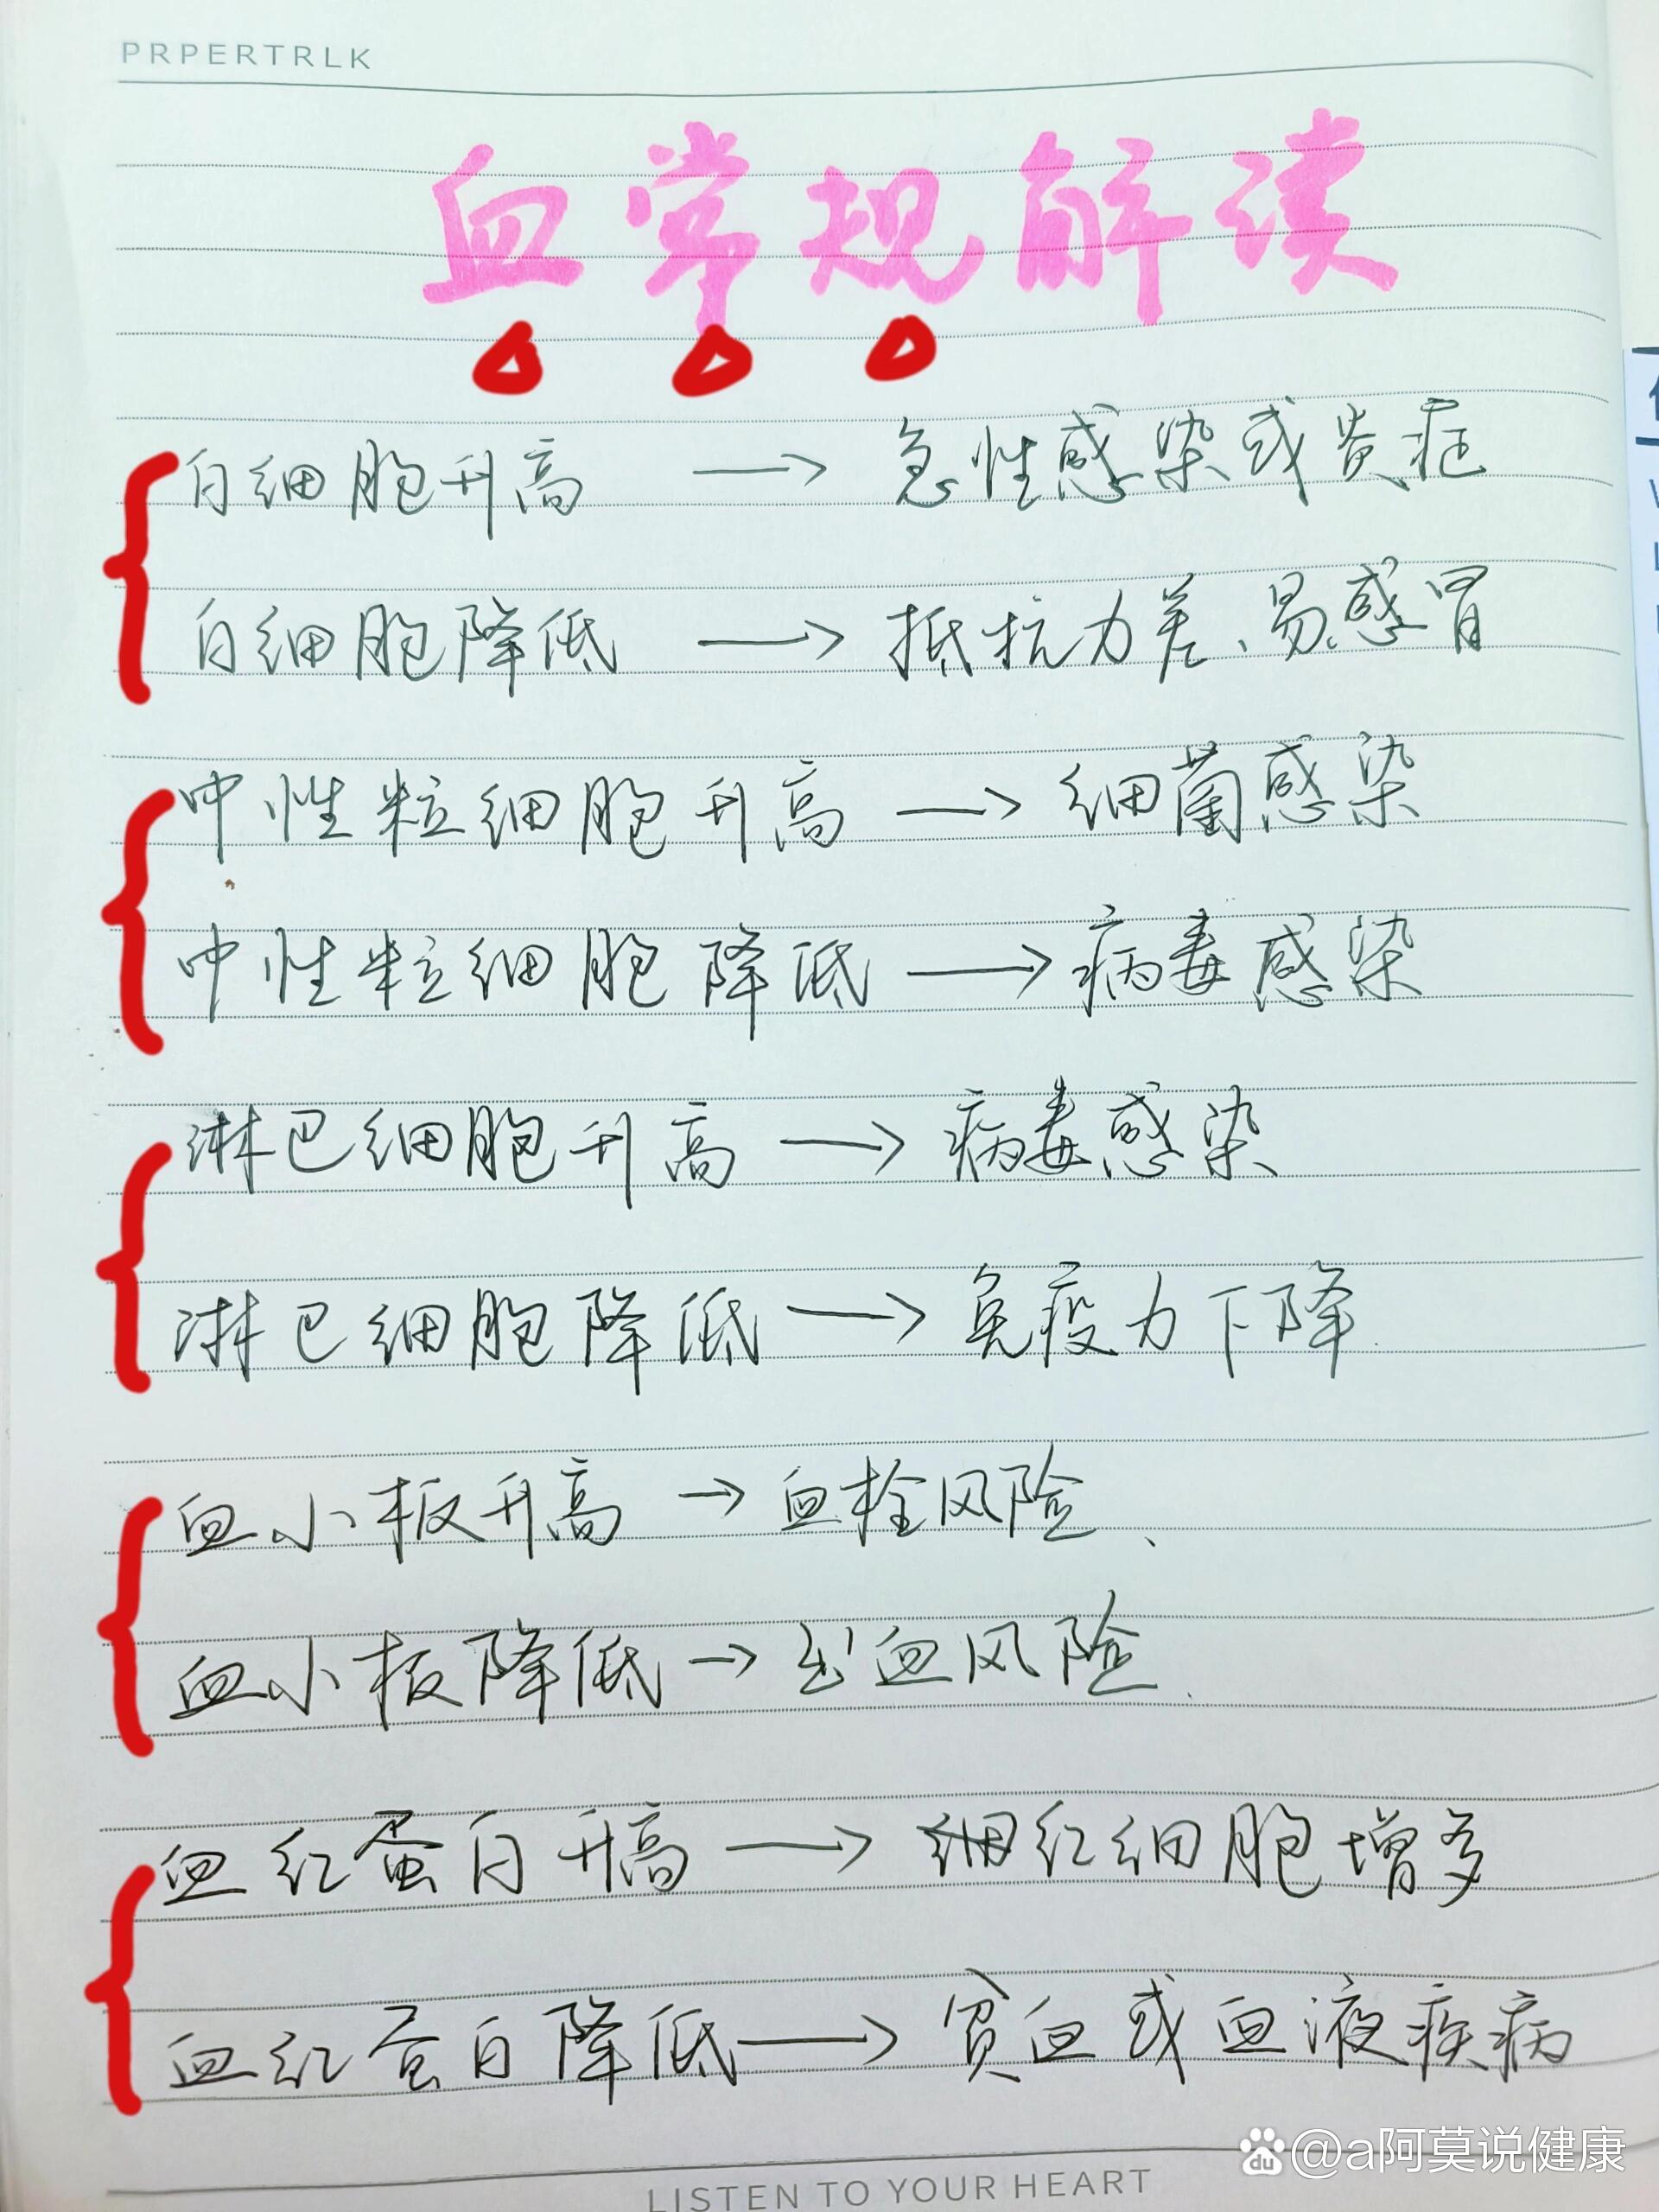 PRPERTRLK
血常规解读
白细胞升高 → 急性感染或炎症
白细胞降低 → 抵抗力差、易感冒
中性粒细胞升高 → 细菌感染
中性粒细胞降低 → 病毒感染
淋巴细胞升高 → 病毒感染
淋巴细胞降低 → 免疫力下降.
血小板升高 → 血栓风险、
血小板降低 → 出血风险.
血红蛋白升高 → 红细胞增多
血红蛋白降低 → 贫血或血液疾病
du @a阿莫说健康
LISTEN TO YOUR HEART